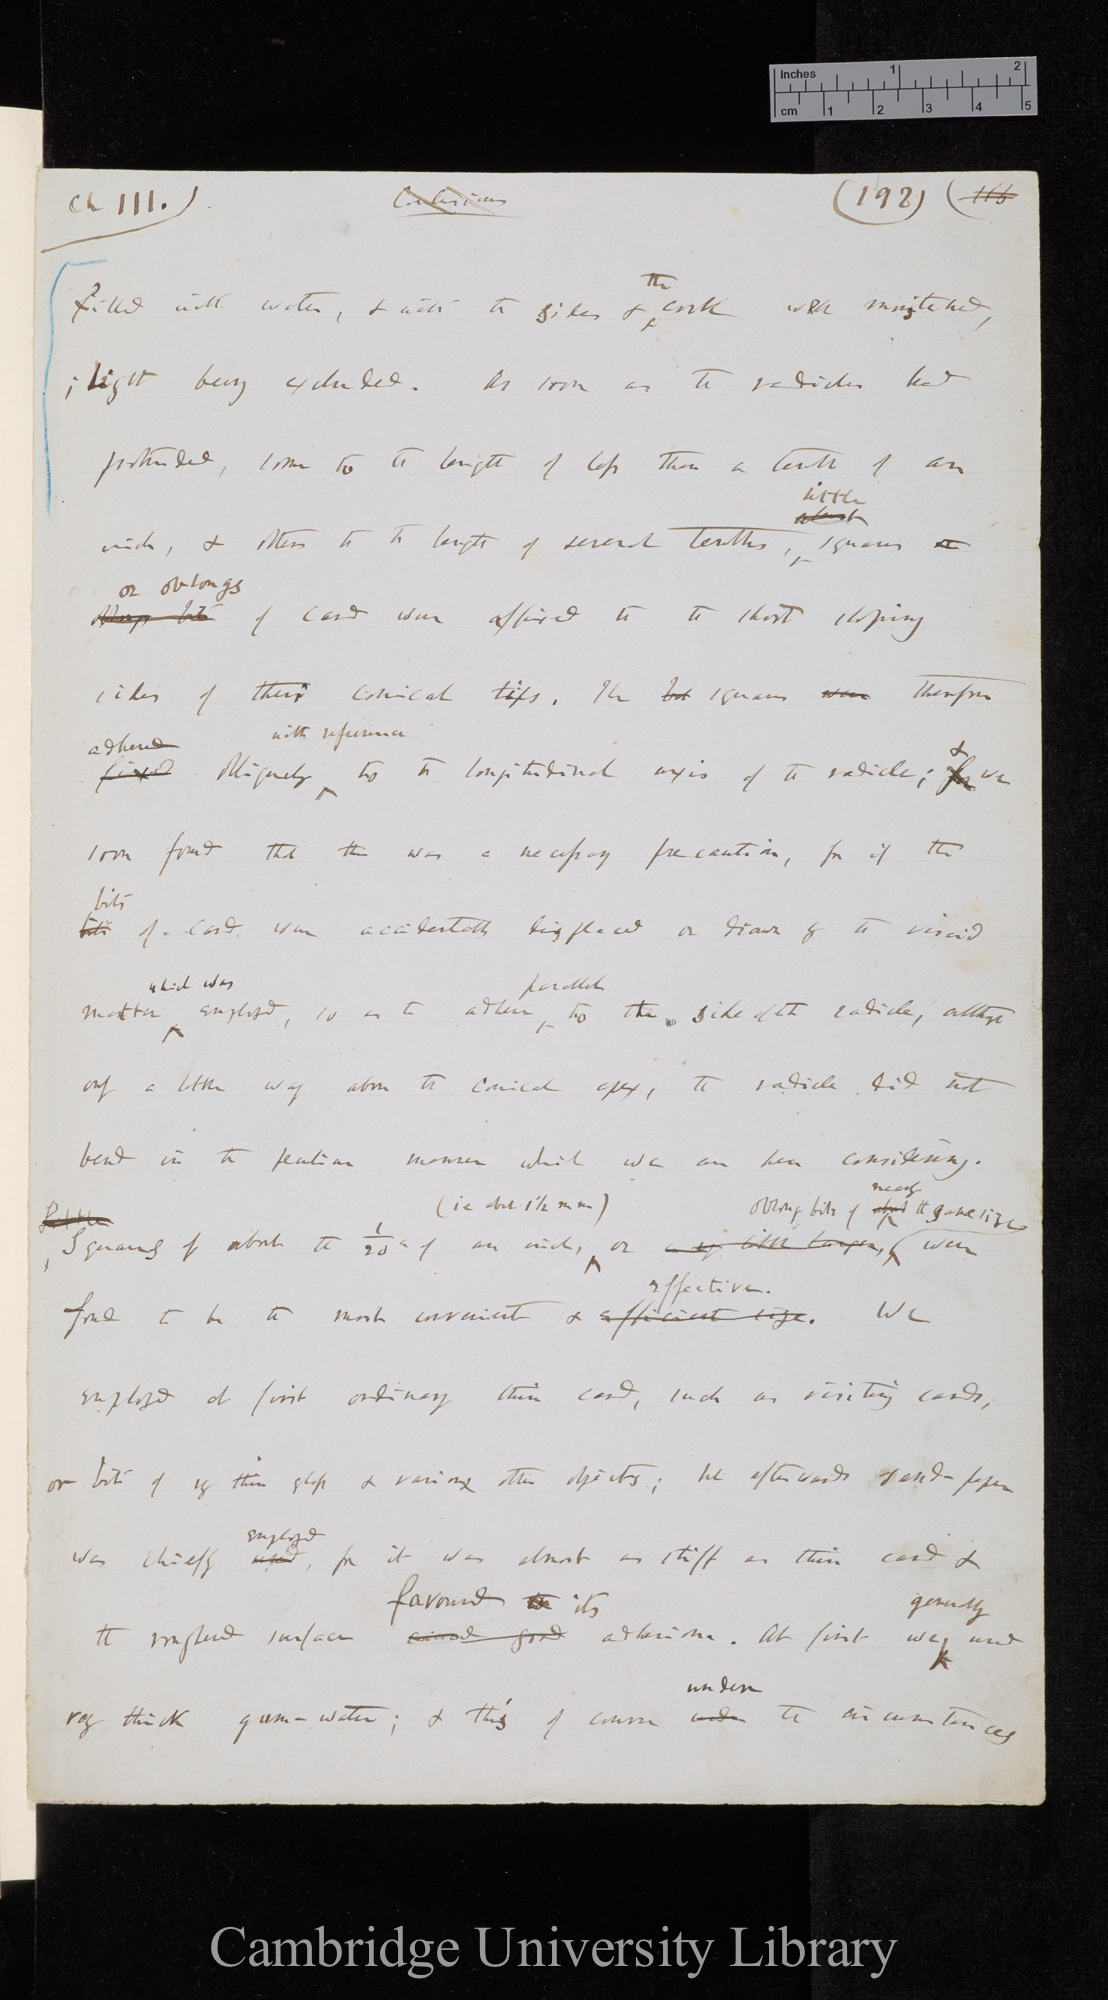 Inches 1 2
cm 1 2 3 4 5
Ch III.) (192) (116
the
filled with water, & with the sides & cork well moistened,
; light being excluded. As soon as the radicles had
protruded, some to the length of less than a tenth of an
little
inch, & others to the length of several tenths, squares
or oblongs
of card were affixed to the short sloping
sides of their conical tips. The bit squares were therefore
adhered with reference &
fixed obliquely to the longitudinal axis of the radicle; for we
soon found that this was a necessary precaution, for if the
bits
bits of card were accidentally displaced or drawn by the viscid
which was parallel
matter employed, so as to adhere to the side of the radicle, although
only a little way above the conical apex, the radicle did not
bend in the peculiar manner which we are here considering.
Little (ie about 1½ mm) oblong bits of nearly about the same size
Squares of about the 1/20th of an inch, or a very little larger, were
effective.
found to be the most convenient & efficient size. We
employed at first ordinary thin card, such as visiting cards,
or bits of very thin glass & various other objects; but afterwards sand-paper
employed
was chiefly used, for it was almost as stiff as thin card &
favoured its generally
the roughened surface good adhesion. At first we used
very thick gum-water; & this of course under the circumstances
under
Cambridge University Library